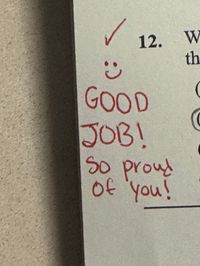 12. W
th
GOOD
JOB!
So proud
of you!